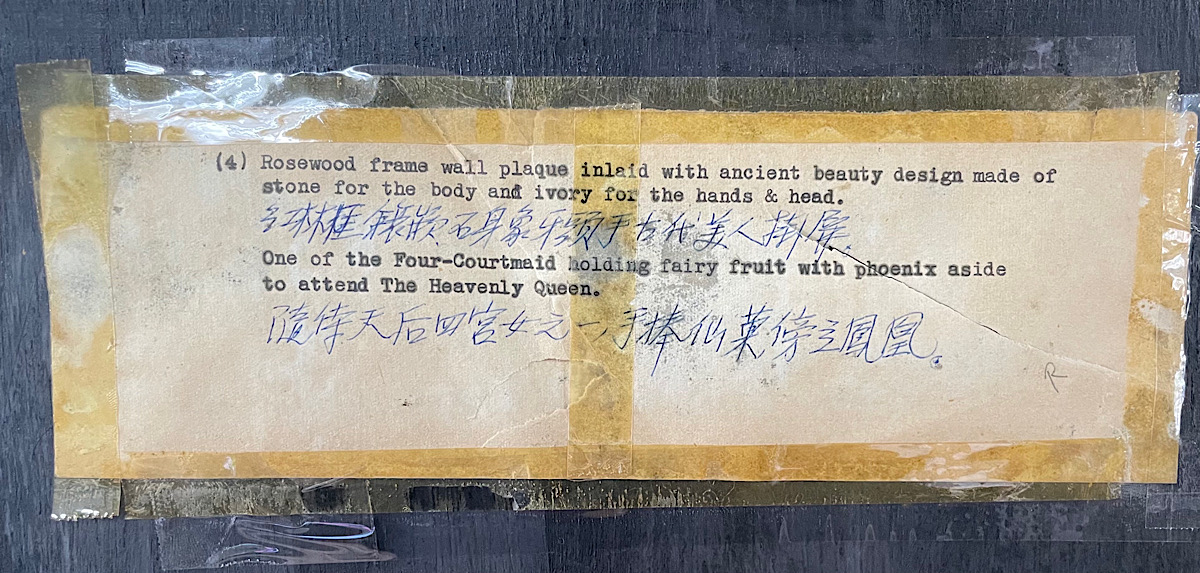 (4) Rosewood frame wall plaque inlaid with ancient beauty design made of
stone for the body and ivory for the hands & head.
红林框镶嵌石身象牙頭手古代美人掛屏.
One of the Four-Courtmaid holding fairy fruit with phoenix aside
to attend The Heavenly Queen.
隨侍天后四宮女之一手捧仙菓傍立鳳凰.
R